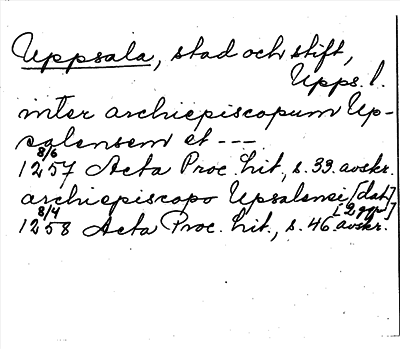 Uppsala, stad och stift,
Upps. l.
inter archiepiscopum Up-
salensem et ---
8/6
1257 Acta Proc. Lit., s. 39. avskr.
archiepiscopo Upsalensi [dat]
8/4 [2 ggr]
1258 Acta Proc. Lit., s. 46. avskr.